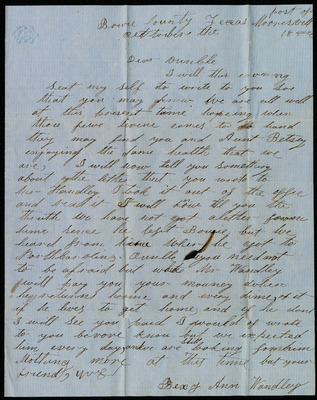 post of
Bowie County Texas Mooresvill
October the 18
Dear Orenble
I will this evening
seat my self to write to you so
that you may know we are all well
at this present time hoping when
thes fiew lines comes to hand
they may find you and Aunt Betsey
enjoying the same health that we
are, I will now tell you something
about the letter that you wrote to
Mr Handley I took it out of the office
and read it I will know till you the
truth we have not got a letter from
him sence he left Bowie but we
heard from him when he got to
North Carolina. you need not
to be afraid but what Mr Handley
will pay you your money when
he returns home and every dime of it
if he lives to get home, and if he dont
I will see you paid I would of wrote
to you before know but we expected
him every day and we are still looking for him
Nothing more at this time but your
friend
Bex & Ann Handley